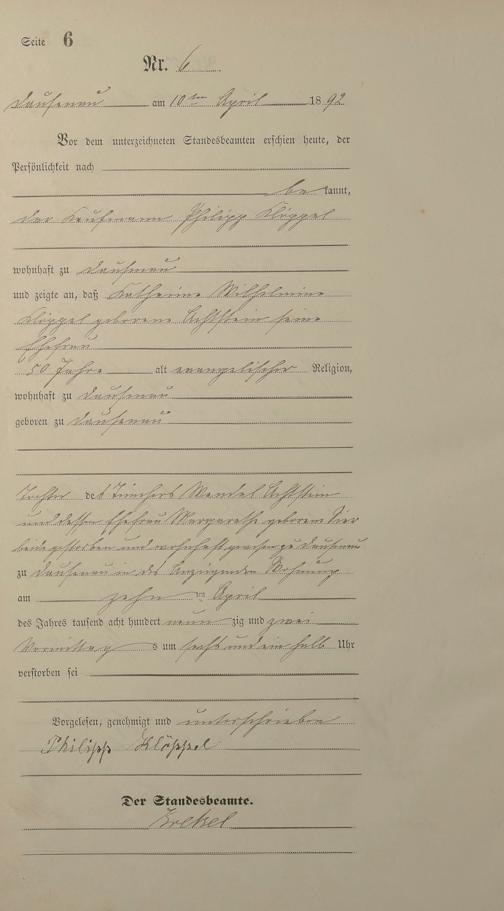 Seite 6
Nr. 6
Dausenau am 10ten April 1892
Vor dem unterzeichneten Standesbeamten erschien heute, der
Persönlichkeit nach
be kannt,
der Kaufmann Philipp Klöppel
wohnhaft zu Dausenau
und zeigte an, daß Katharine Wilhelmine
Klöppel geborene Achtstein seine
Ehefrau
50 Jahre alt evangelischer Religion,
wohnhaft zu Dausenau
geboren zu Dausenau
Tochter des Tünchers Wendel Achtstein
und dessen Ehefrau Margarethe geborene
beide gestorben und wohnhaft gewesen zu Dausenau
zu Dausenau in des Anzeigenden Wohnung
am zehn ten April
des Jahres tausend acht hundert neun zig und zwei
Vormittag s um sechs und ein halb Uhr
verstorben sei
Vorgelesen, genehmigt und unterschrieben
Philipp Klöppel
Der Standesbeamte.